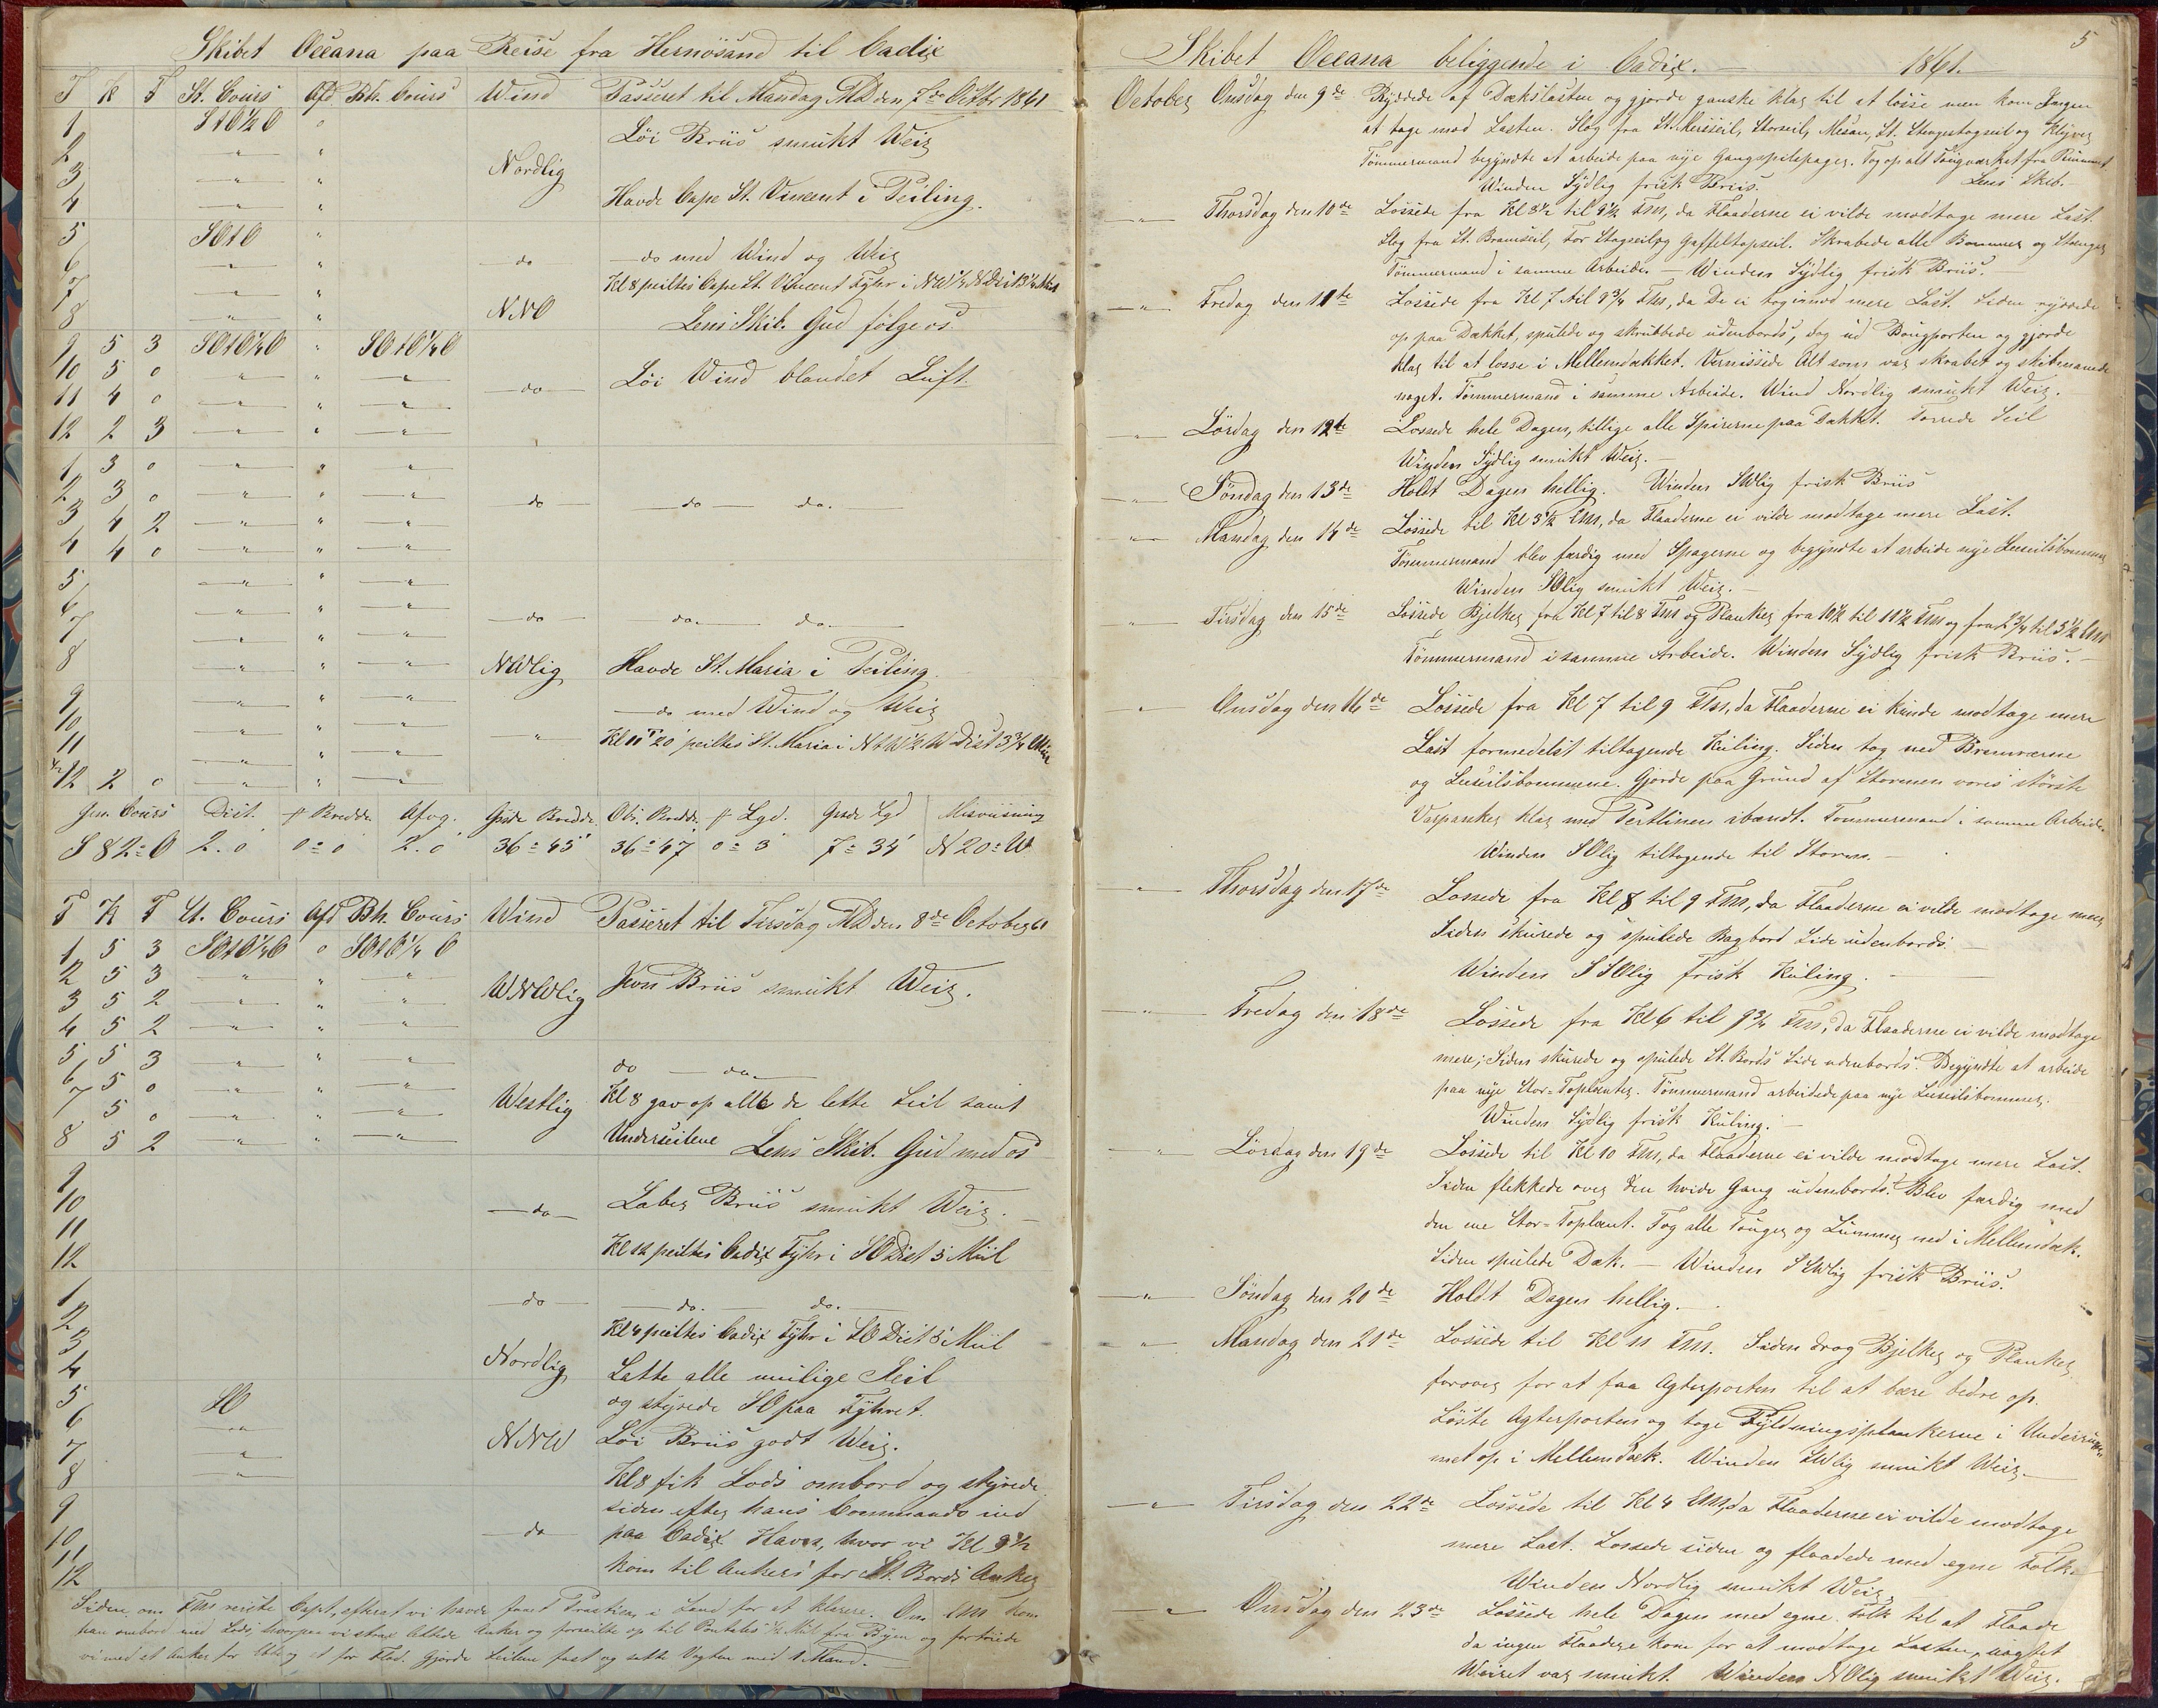 Skibet Oceana paa Reise fra Hernösand til Cadix
T K F St. Cours Afd Bb. Cours Wind Passeret til Mandag MD den 7de Octbr 1861
1 StO½O "
2 " " Löi Briis smukt Weir
3 " " Nordlig
4 " " Havde Cape St. Vincent i Peiling.
5 SOtO "
6 " " do do med Wind og Weir
7 " " Kl 8 peiltes Cape St. Vincent Fyhr i
8 " " NNO Lens Skib. Gud fölge os.
9 5 3 SOtO¼O " SOtO¼O
10 5 0 " " " do Löi Wind blandet Luft.
11 4 0 " " "
12 2 3 " " "
1 3 0 " " "
2 3 0 " " " do do do.
3 4 2 " " "
4 4 0 " " "
5 " " "
6 " " " do do do
7 " " "
8 " " " NWlig Havde St. Maria i Peiling.
9 " " " do med Wind og Weir
10 " " "
11 " " " " Kl 11 T 20' peiltes St. Maria i NtW½W Dist 3¾ Miil
12 2 0 " " "
Gen. Cours Dist. f Bredde Afvg. Gisde Bredde Obs. Bredde f Lgd. Gisde Lgd Misviisning
S 82° O 2.0 0°0 2.0 36°45' 36°47 0°3 7°34' N 20° W
T K F St. Cours Afd Bb. Cours Wind Passeret til Tirsdag MD den 8de October 61
1 5 3 SOtO¼O 0 SOtO¼O
2 5 3 " " "
3 5 2 " " " WNWlig Jevn Briis smukt Weir.
4 5 2 " " "
5 5 3 " " " do do
6 5 0 " " "
7 5 0 " " " Westlig Kl 8 gav op alle de lette Seil samt
8 5 2 " " " Underseilene Lens Skib. Gud med os
9
10 do Laber Briis smukt Weir.
11
12 Kl 12 peiltes Cadix Fyhr i SO Dist 5 Miil
1 do do. do.
2 Kl 4 peiltes Cadix Fyhr i SO Dist 5 Miil
3 Nordlig Satte alle muilige Seil
4 og styrede SO paa Fyhret.
5 SO
6 " NNW Löi Briis godt Weir.
7 "
8 " Kl 8 fik Lods ombord og styrede
9 siden efter hans Commando ind
10 do paa Cadix Havn, hvor vi Kl 9½
11 kom til Ankers for St. Bords Anker
12
Siden om Fm reiste Capt, efterat vi havde faaet Practica, i Land for at klarere. Om Em kom
han ombord med Lods, hvorpaa vi strax lettede Anker og forseilte op til Pontales ½ Miil fra Byen og fortöiede
vi med et Anker for Ebb og et for Flod. Gjorde Seilene fast og satte Vagten med 1 Mand.
Skibet Oceana beliggende i Cadix. 1861. 5
October Onsdag den 9de Ryddede af Dækslasten og gjorde ganske klar til at losse men kom Ingen
at tage mod Lasten. Slog fra St. Mersseil, Storseil, Mesan, St. Stengestagseil og Klyver
Tömmermand begyndte at arbeide paa nye Gangspilspager. Tog op alt Tougværket fra Rummet
Winden Sydlig frisk Briis. Lens Skib.
" Thorsdag den 10de Lossede fra Kl 8½ til 9½ Fm, da Flaaderne ei vilde modtage mere Last.
Slog fra St. Bramseil, For Stagseil og Gaffeltopseil. Skrabede alle Bommer og Stænger
Tömmermand i samme Arbeide. Winden Sydlig frisk Briis.
" Fredag den 11te Lossede fra Kl 7 til 9¾ Fm, da De ei tog imod mere Last. Siden ryddede
op paa Dækket, spulede og skrubbede udenbords, tog ud Bougporten og gjorde
klar til at losse i Mellemdækket. Vernissede Alt som var skrabet og skibmanede
noget. Tömmermand i samme Arbeide. Wind Nordlig smukt Weir.
" Lördag den 12te Lossede hele Dagen, tillige alle Spirerne paa Dækket. Törrede Seil
Winden Sydlig smukt Weir.
" Söndag den 13de Holdt Dagen hellig. Winden SWlig frisk Briis
" Mandag den 14de Lossede til Kl 3½ Em, da Flaaderne ei vilde modtage mere Last.
Tömmermand blev færdig med Spagerne og begyndte at arbeide nye Læseilsbommer
Winden SOlig smukt Weir.
" Tirsdag den 15de Lossede Bjelker fra Kl 7 til 8 Fm og Planker fra 10½ til 11½ Fm og fra 2¾ til 5½ Em
Tömmermand i samme Arbeide. Winden Sydlig frisk Briis.
" Onsdag den 16de Lossede fra Kl 7 til 9 Fm, da Flaaderne ei kunde modtage mere
Last formedelst tiltagende Kuling. Siden tog ned Bramræerne
og Læseilsbommene. Gjorde paa Grund af Stormen vores störste
Varpanker klar med Pertlinen ibændt. Tömmermand i samme Arbeide.
Winden SOlig tiltagende til Storm.
" Thorsdag den 17de Lossede fra Kl 8 til 9 Fm, da Flaaderne ei vilde modtage mere
Siden skurede og spulede Bagbord Side udenbords.
Winden SSOlig frisk Kuling.
" Fredag den 18de Lossede fra Kl 6 til 9¾ Fm, da Flaaderne ei vilde modtage
mere; Siden skurede og spulede St. Bords Side udenbords. Begyndte at arbeide
paa nye Stor-Toplenter. Tömmermand arbeidede paa nye Læseilsbommer.
Winden Sydlig frisk Kuling.
" Lördag den 19de Lossede til Kl 10 Fm, da Flaaderne ei vilde modtage mere Last.
Siden flekkede over den hvide Gang udenbords. Blev færdig med
den ene Stor-Toplent. Tog alle Touger og Lummer ned i Mellemdæk.
Siden spulede Dæk. Winden SSWlig frisk Briis.
" Söndag den 20de Holdt Dagen hellig.
" Mandag den 21de Lossede til Kl 11 Fm. Siden drog Bjelker og Planker
forover for at faa Agterporten til at bære bedre op.
Löste Agterporten og toge Fyldningsplankerne i Underrum-
met op i Mellemdæk. Winden SWlig smukt Weir.
" Tirsdag den 22de Lossede til Kl 4 Em, da Flaaderne ei vilde modtage
mere Last. Lossede siden og flaadede med egne Folk
Winden Nordlig smukt Weir
" Onsdag den 23de Lossede hele Dagen med egne Folk til at Flaade
da ingen Flaadere kom for at modtage Lasten, uagtet
Weiret var smukt. Winden NOlig smukt Weir.